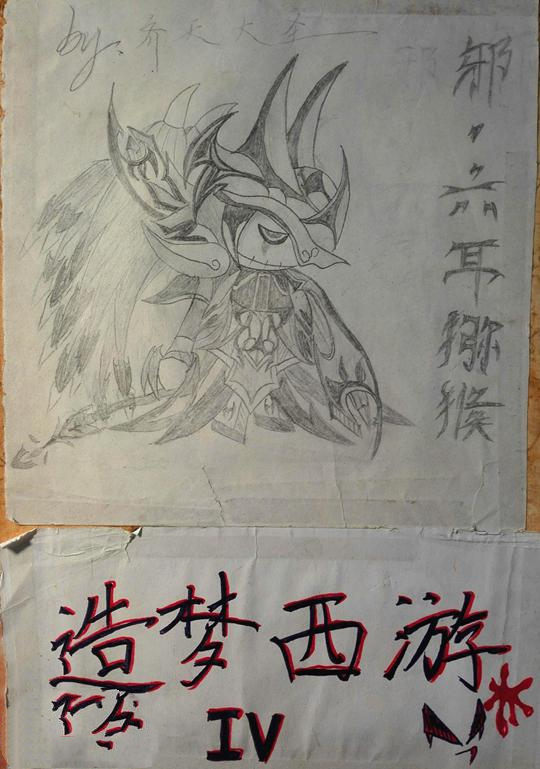 by: 齐天大圣
邪·六耳猕猴
造梦西游
IV